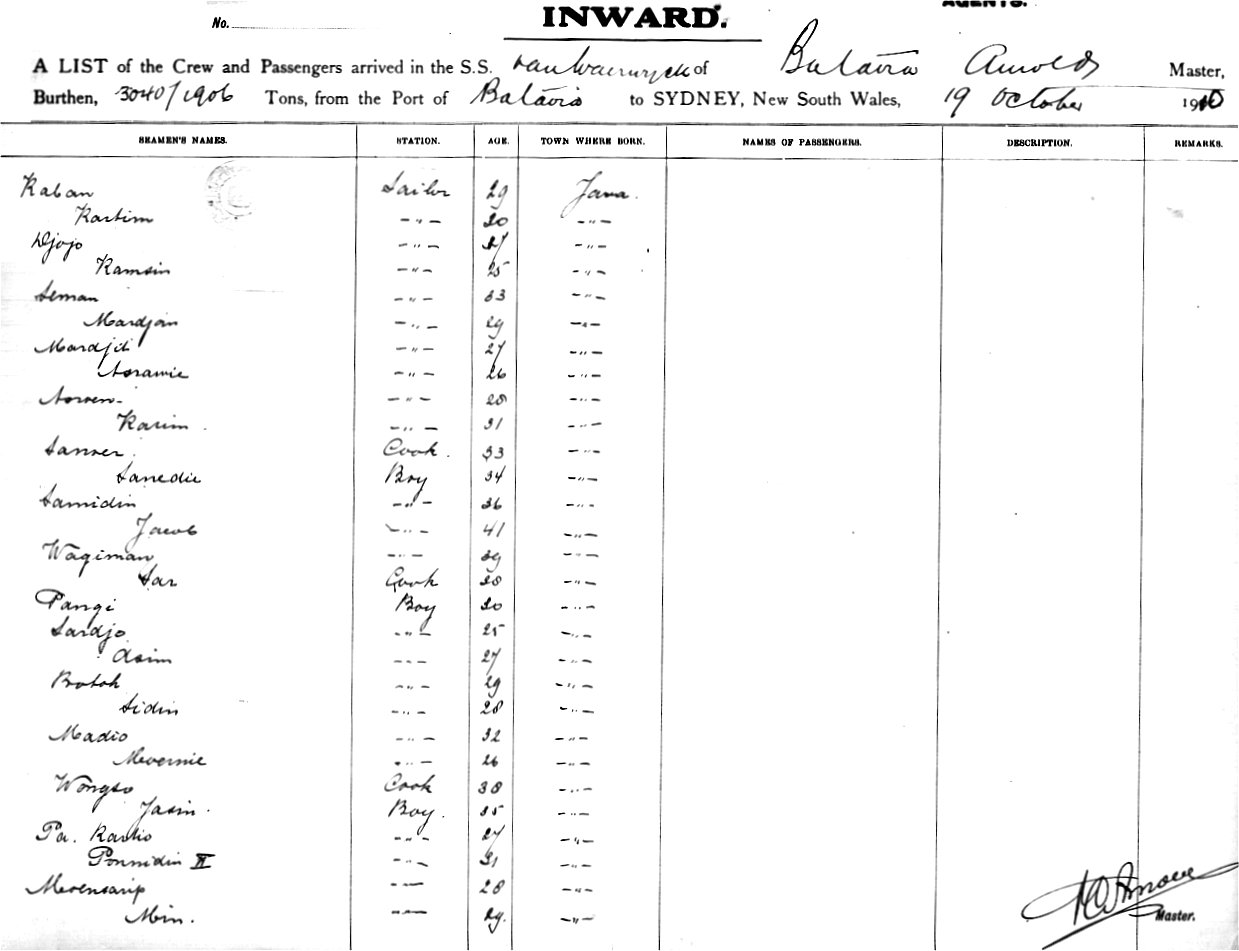 AGENTS.
No.
INWARD.
A LIST of the Crew and Passengers arrived in the S.S. van Waerwyck of Batavia Arnolds Master,
Burthen, 3040/1906 Tons, from the Port of Batavia to SYDNEY, New South Wales, 19 October 1910
SEAMEN'S NAMES. STATION. AGE. TOWN WHERE BORN. NAMES OF PASSENGERS. DESCRIPTION. REMARKS.
Kaban Sailor 29 Java.
Kartim -"- 20 -"-
Djojo -"- 27 -"-
Kamsin -"- 25 -"-
Seman -"- 33 -"-
Mardjan -"- 29 -"-
Mardjit -"- 27 -"-
Asrawie -"- 26 -"-
-"- 28 -"-
Karim -"- 31 -"-
Cook. 33 -"-
Sanedie Boy 34 -"-
Samidin -"- 36 -"-
Jacob -"- 41 -"-
Wagiman -"- 39 -"-
Sar Cook 28 -"-
Pangi Boy 20 -"-
Sardjo -"- 25 -"-
Asim -"- 27 -"-
Botok -"- 29 -"-
Sidin -"- 28 -"-
Madio -"- 32 -"-
Moernie -"- 26 -"-
Wongso Cook 38 -"-
Jasin. Boy. 35 -"-
Pa. Kartio -"- 27 -"-
Ponnidin II -"- 31 -"-
Moensarip -"- 28 -"-
Min. -"- 29. -"-
Master.